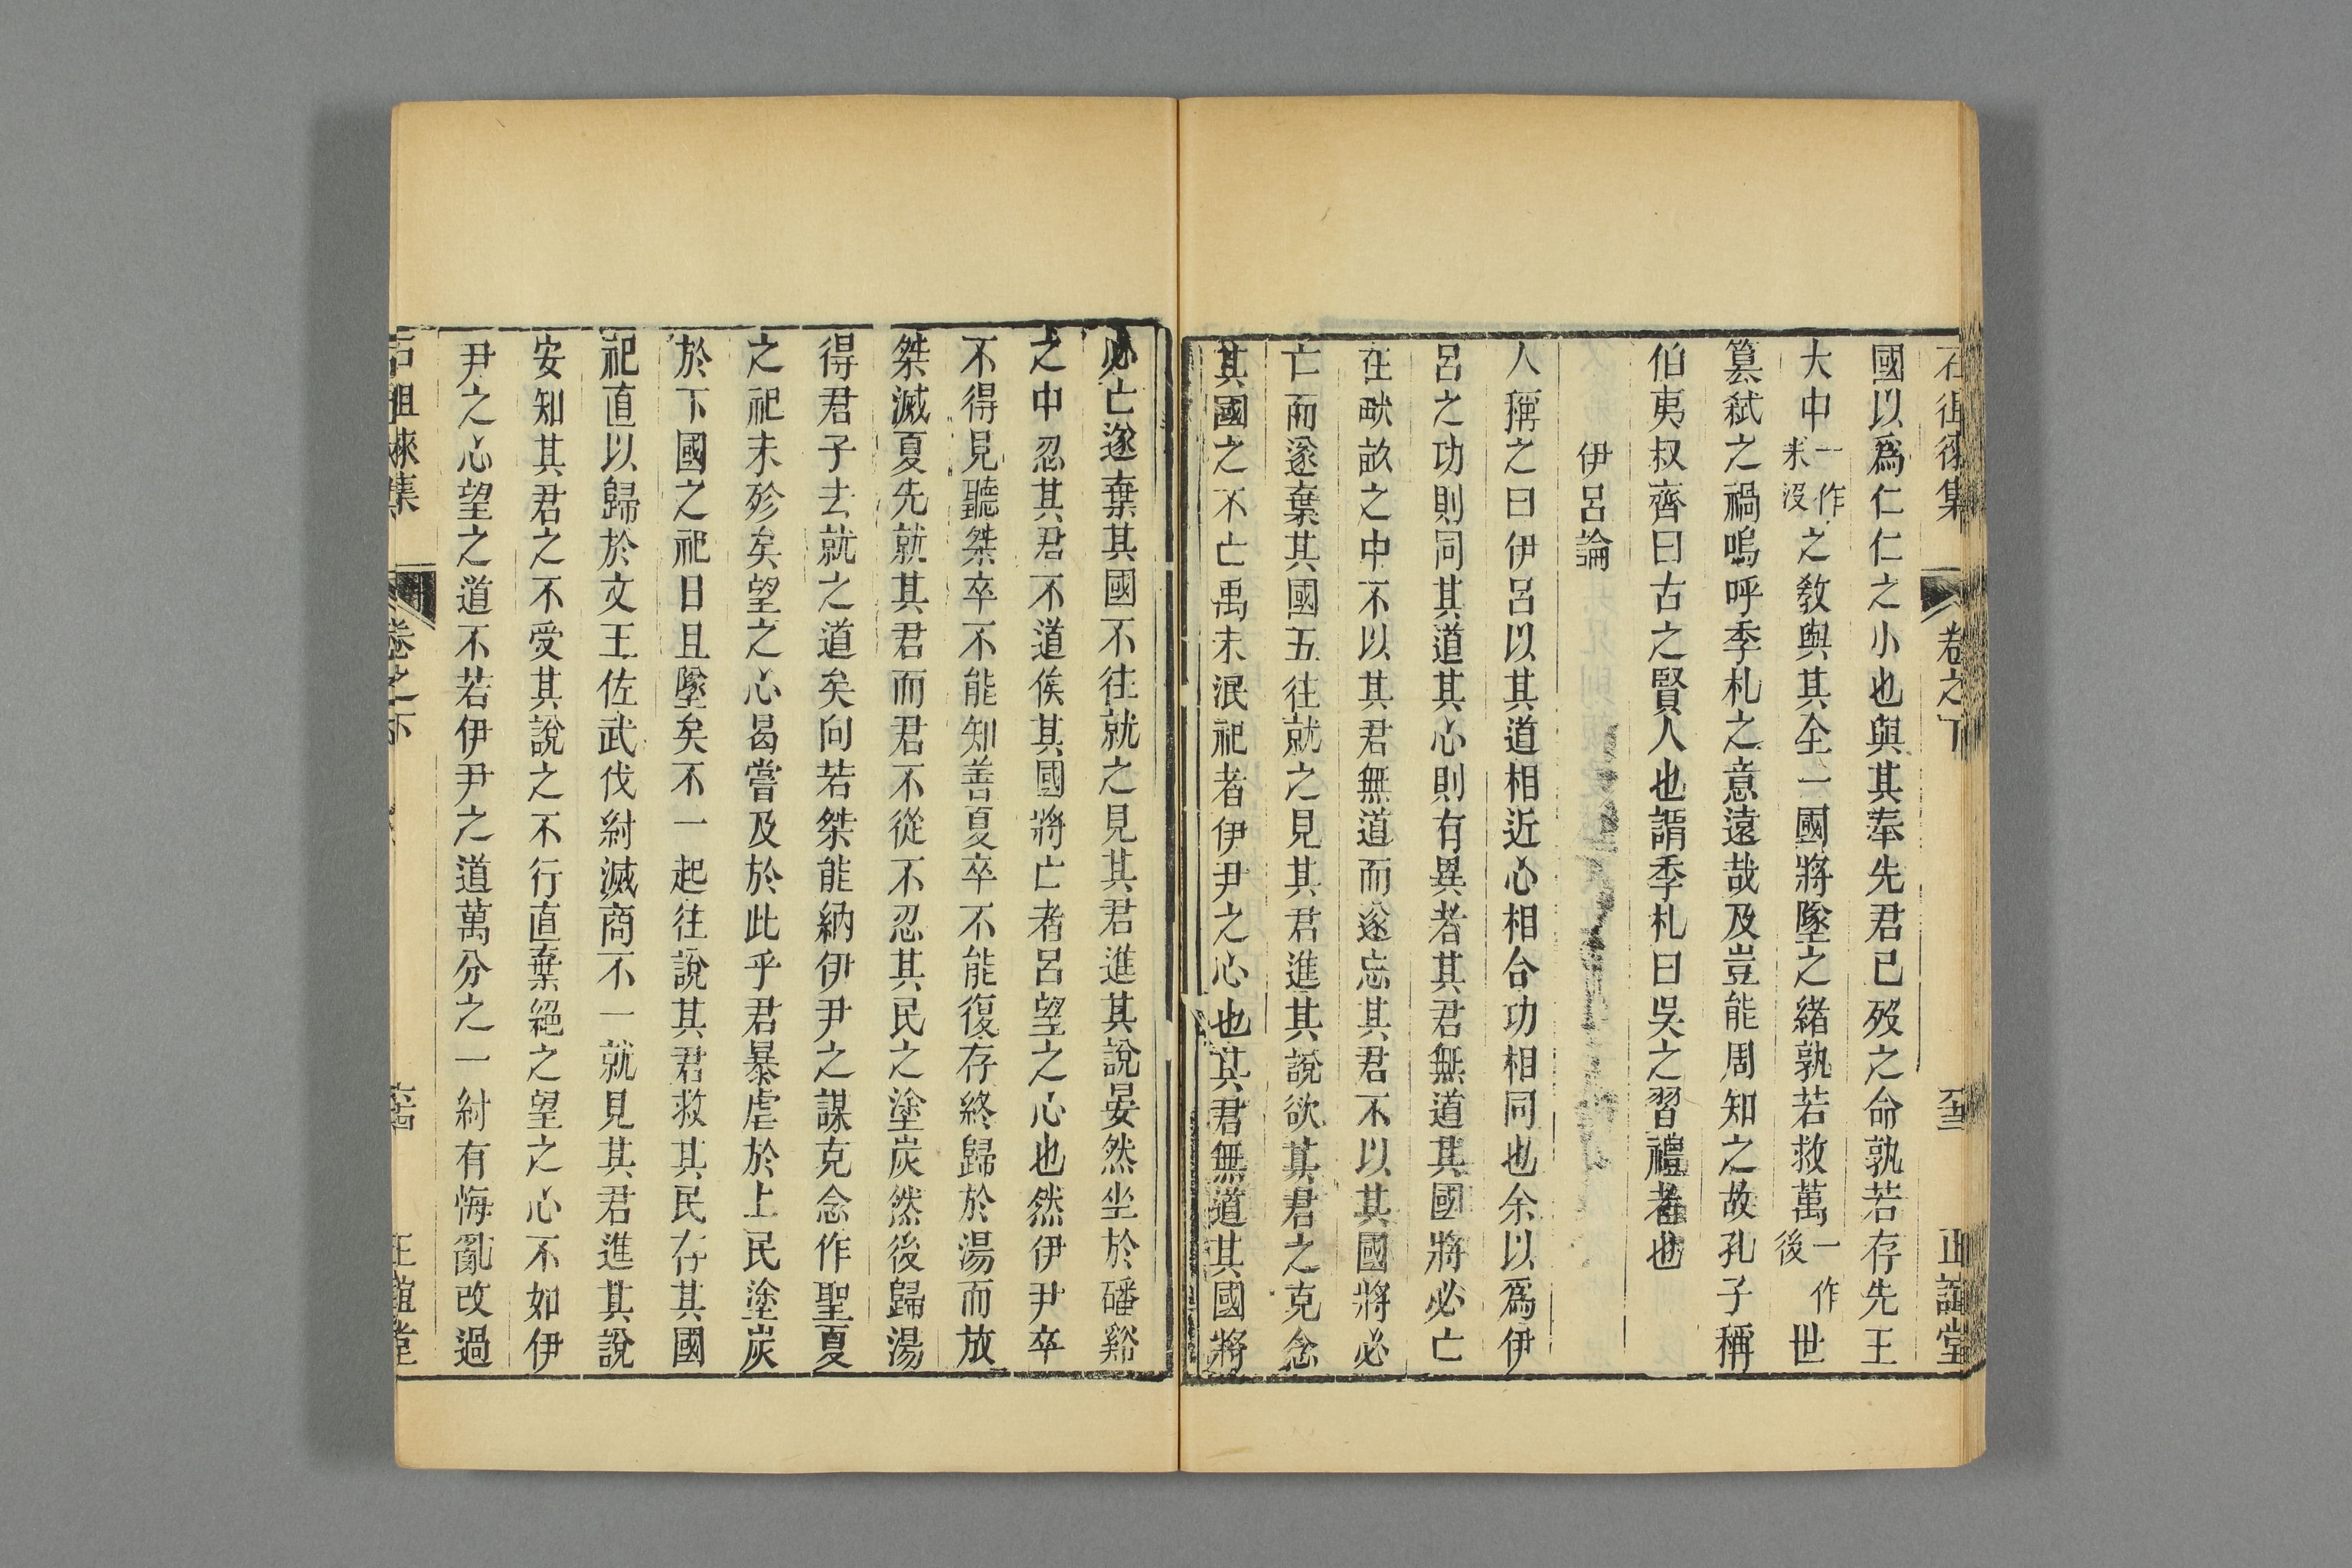 石徂徠集 卷之下 正誼堂
國以爲仁仁之小也與其奉先君已歿之命孰若存先王
大中一作米沒之敎與其全一國將墜之緒孰若救萬一作後世
篡弑之禍嗚呼季札之意遠哉及豈能周知之故孔子稱
伯夷叔齊曰古之賢人也謂季札曰吳之習禮者也
伊呂論
人稱之曰伊呂以其道相近心相合功相同也余以爲伊
呂之功則同其道其心則有異者其君無道其國將必亡
在畎畝之中不以其君無道而遂忘其君不以其國將必
亡而遂棄其國五往就之見其君進其說欲其君之克念
其國之不亡禹未泯祀者伊尹之心也其君無道其國將
必亡遂棄其國不往就之見其君進其說晏然坐於磻谿
之中忍其君不道俟其國將亡者呂望之心也然伊尹卒
不得見聽桀卒不能知善夏卒不能復存終歸於湯而放
桀滅夏先就其君而君不從不忍其民之塗炭然後歸湯
得君子去就之道矣向若桀能納伊尹之謀克念作聖夏
之祀未殄矣望之心曷嘗及於此乎君暴虐於上民塗炭
於下國之祀日且墜矣不一起往說其君救其民存其國
祀直以歸於文王佐武伐紂滅商不一就見其君進其說
安知其君之不受其說之不行直棄絕之望之心不如伊
尹之心望之道不若伊尹之道萬分之一紂有悔亂改過
石徂徠集 卷之下 正誼堂